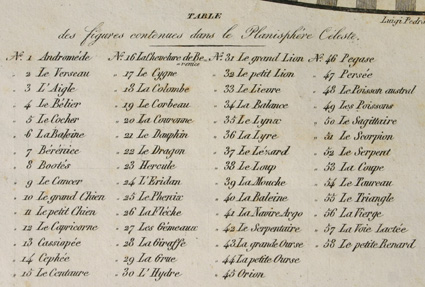 TABLE
Luigi Pedro
des figures contenues dans le Planisphère Céleste.
N.º 1 Andromède
" 2 Le Verseau
" 3 L'Aigle
" 4 Le Bélier
" 5 Le Cocher
" 6 La Baleine
" 7 Bérénice
" 8 Bootés
" 9 Le Cancer
" 10 Le grand Chien
" 11 Le petit Chien
" 12 Le Capricorne
" 13 Cassiopée
" 14 Cephée
" 15 Le Centaure
N.º 16 La Chevelure de Bé-
renice
" 17 Le Cygne
" 18 La Colombe
" 19 Le Corbeau
" 20 La Couronne
" 21 Le Dauphin
" 22 Le Dragon
" 23 Hercule
" 24 L'Eridan
" 25 Le Phenix
" 26 La Flèche
" 27 Les Gémeaux
" 28 La Giraffe
" 29 La Grue
" 30 L'Hydre
N.º 31 Le grand Lion
" 32 Le petit Lion
" 33 Le Lievre
" 34 La Balance
" 35 Le Lynx
" 36 La Lyre
" 37 Le Lézard
" 38 Le Loup
" 39 La Mouche
" 40 La Baleine
" 41 La Navire Argo
" 42 Le Serpentaire
" 43 La grande Ourse
" 44 La petite Ourse
" 45 Orion
N.º 46 Pegase
" 47 Persée
" 48 Le Poisson austral
" 49 Les Poissons
" 50 Le Sagittaire
" 51 Le Scorpion
" 52 Le Serpent
" 53 La Coupe
" 54 Le Taureau
" 55 Le Triangle
" 56 La Vierge
" 57 La Voie Lactée
" 58 Le petit Renard